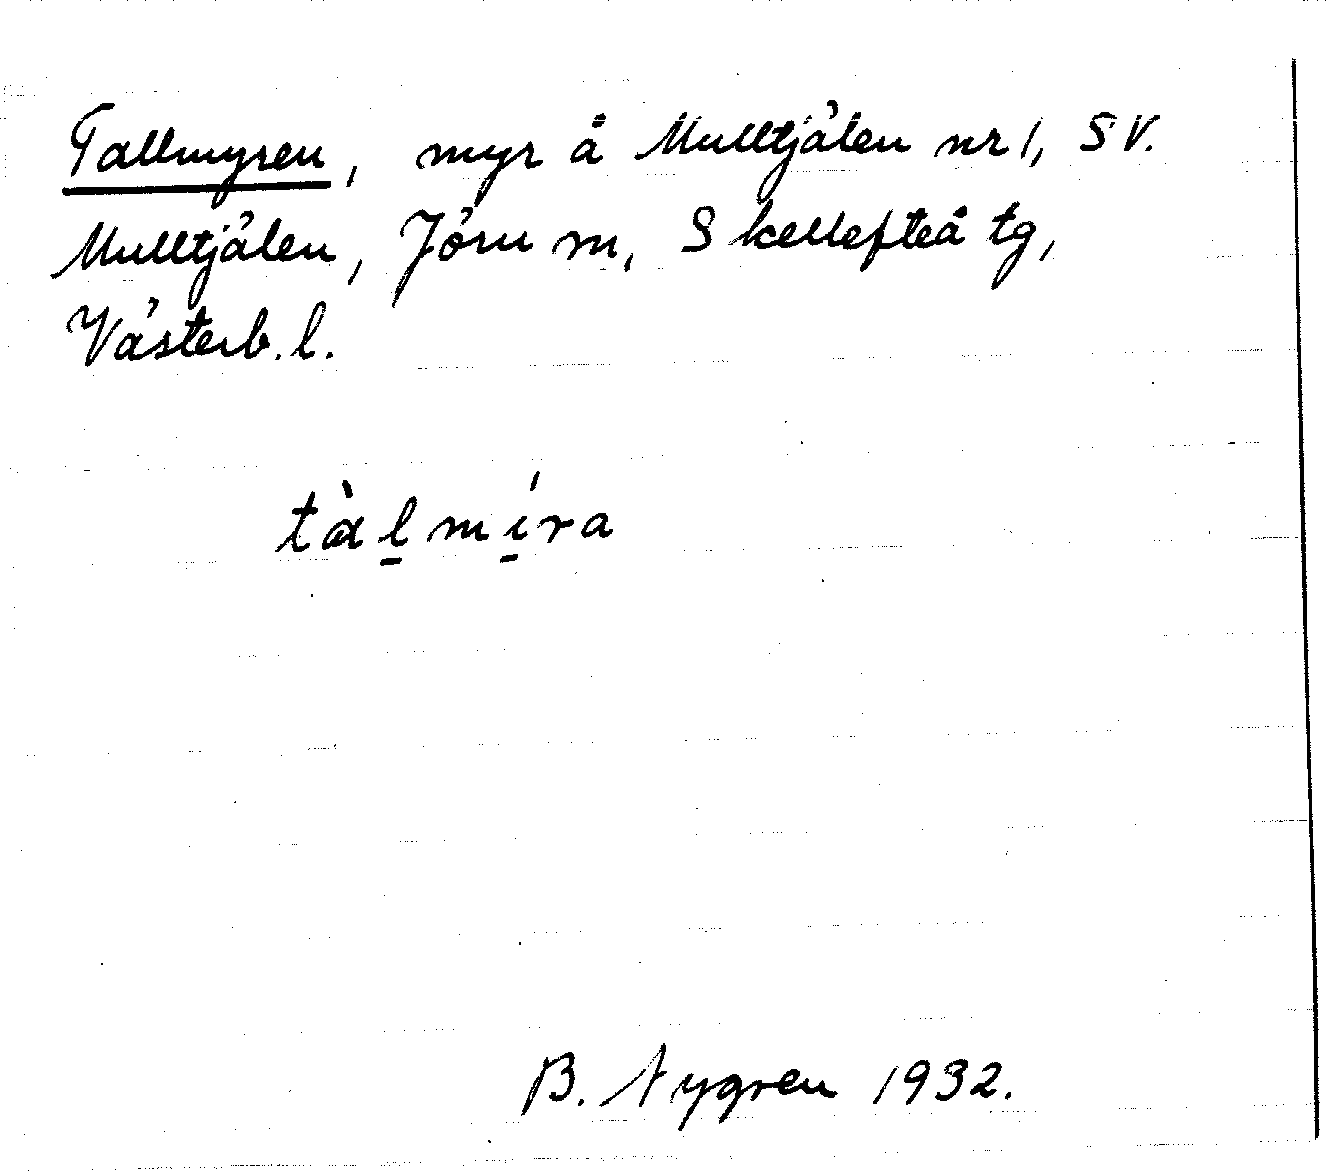 Tallmyren, myr å Mulltjälen nr 1, SV.
Mulltjälen, Jörn sn, Skellefteå tg,
Västerb. l.
tàl̠mí̠ra
B. Nygren 1932.